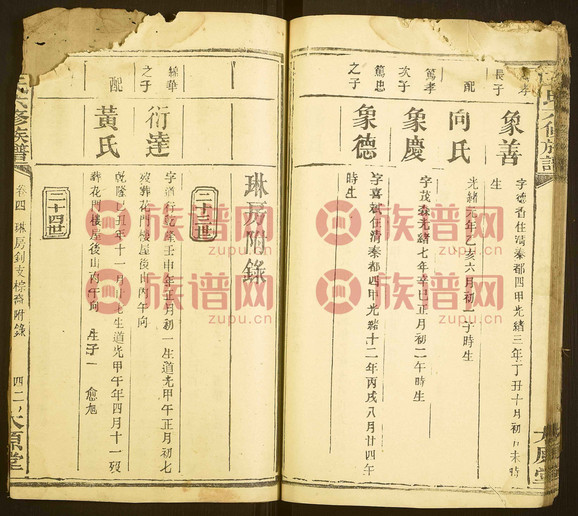 篤孝
長子
象善
字德香住清秦都四甲光緒三年丁丑十月初八未時
生
配
向氏
光緒元年乙亥六月初一子時生
篤孝
次子
象慶
字茂森光緒七年辛巳正月初二午時生
篤忠
之子
象德
字喜斌住清秦都四甲光緒十二年丙戌八月廿四午
時生
琳房附錄
二十三世
之子
衍達
字道行乾隆壬申年正月初一生道光甲午正月初七
歿葬花門樓屋後山丙午向
配
黃氏
乾隆己丑年十一月十九生道光甲午年四月十一歿
葬花門樓屋後山丙午向 生子一 愈旭
二十四世
氏六修族譜
卷四 琳房釗支 附錄
四二
太原堂
族谱网
zupu.cn
族谱网
zupu.cn
族谱网
zupu.cn
族谱网
zupu.cn